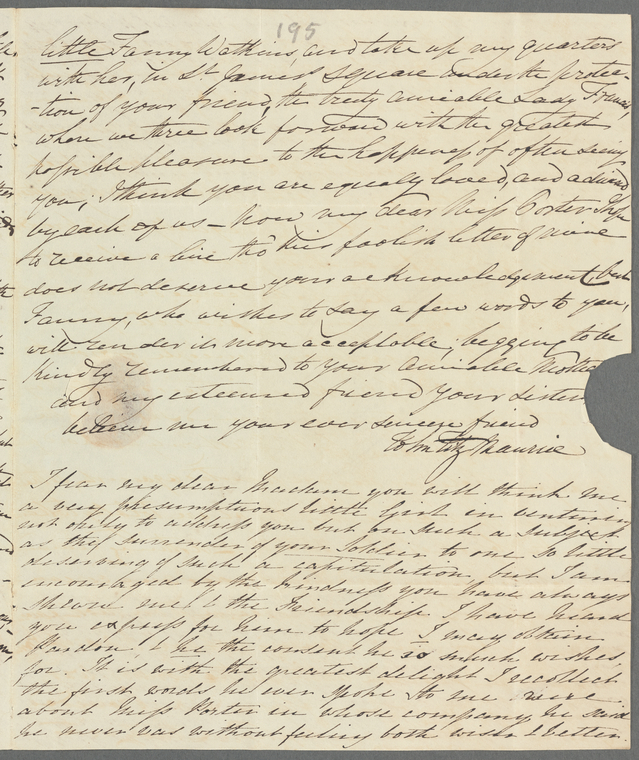 195
little Fanny Watkins, and take up my quarters
with her, in St James's Square under the protec-
-tion of your friend, the truly amiable Lady Frances,
where we three look forward with the greatest
possible pleasure to the happiness of often seeing
you; I think you are equally loved, and admired
by each of us - now my dear Miss Porter I
to receive a line tho this foolish letter of mine
does not deserve your acknowledgement, but
Fanny, who wishes to say a few words to you,
will render it more acceptable; begging to be
kindly remembered to your amiable Mother
and my esteemed friend your Sister
believe me your ever sincere friend
Fitz Maurice
I fear my dear Madam you will think me
a very presumptuous little Girl in venturing
not only to address you but on such a subject
as the surrender of your Soldier to one so little
deserving of such a capitulation, but I am
encouraged by the kindness you have always
shewn me & the Friendship I have heard
you express for him to hope I may obtain
Pardon, & he the consent he so much wishes
for. It is with the greatest delight I recollect
the first words he ever spoke to me were
about Miss Porter in whose company he said
he never was without feeling both wiser & better.